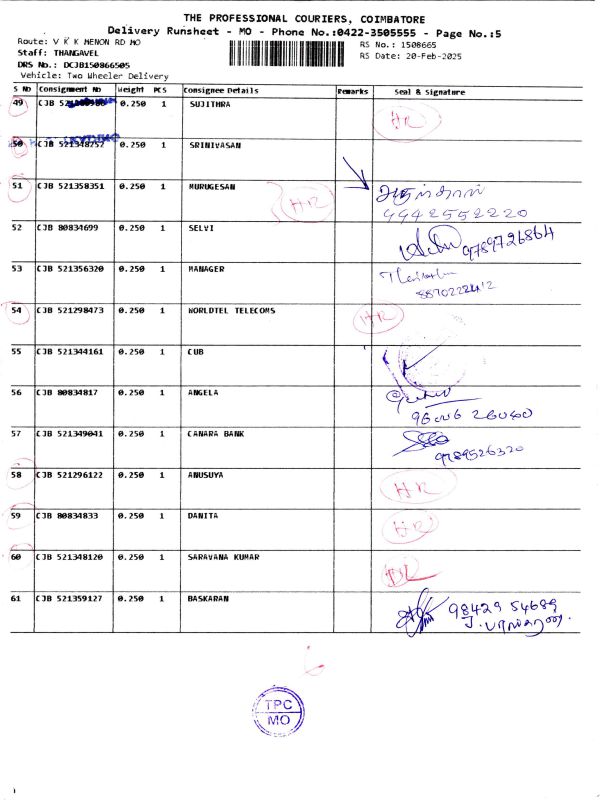 THE PROFESSIONAL COURIERS, COIMBATORE
Delivery Runsheet - MO - Phone No.:0422-3505555 - Page No.:5
Route: V K K MENON RD MO
RS No.: 1508665
Staff: THANGAVEL
RS Date: 20-Feb-2025
DRS No.: DCJB150866505
Vehicle: Two Wheeler Delivery
S No Consignment No Weight PCS Consignee Details Remarks Seal & Signature
49 CJB 0.250 1 SUJITHRA HR
50 CJB 521348757 0.250 1 SRINIVASAN
51 CJB 521358351 0.250 1 MURUGESAN HR
4942552220
52 CJB 80834699 0.250 1 SELVI 9789726864
53 CJB 521356320 0.250 1 MANAGER
54 CJB 521298473 0.250 1 WORLDTEL TELECOMS HR
55 CJB 521344161 0.250 1 CUB
56 CJB 80834817 0.250 1 ANGELA
57 CJB 521349041 0.250 1 CANARA BANK
9789526320
58 CJB 521296122 0.250 1 ANUSUYA HR
59 CJB 80834833 0.250 1 DANITA HR
60 CJB 521348120 0.250 1 SARAVANA KUMAR DL
61 CJB 521359127 0.250 1 BASKARAN 98429 54689
TPC
MO